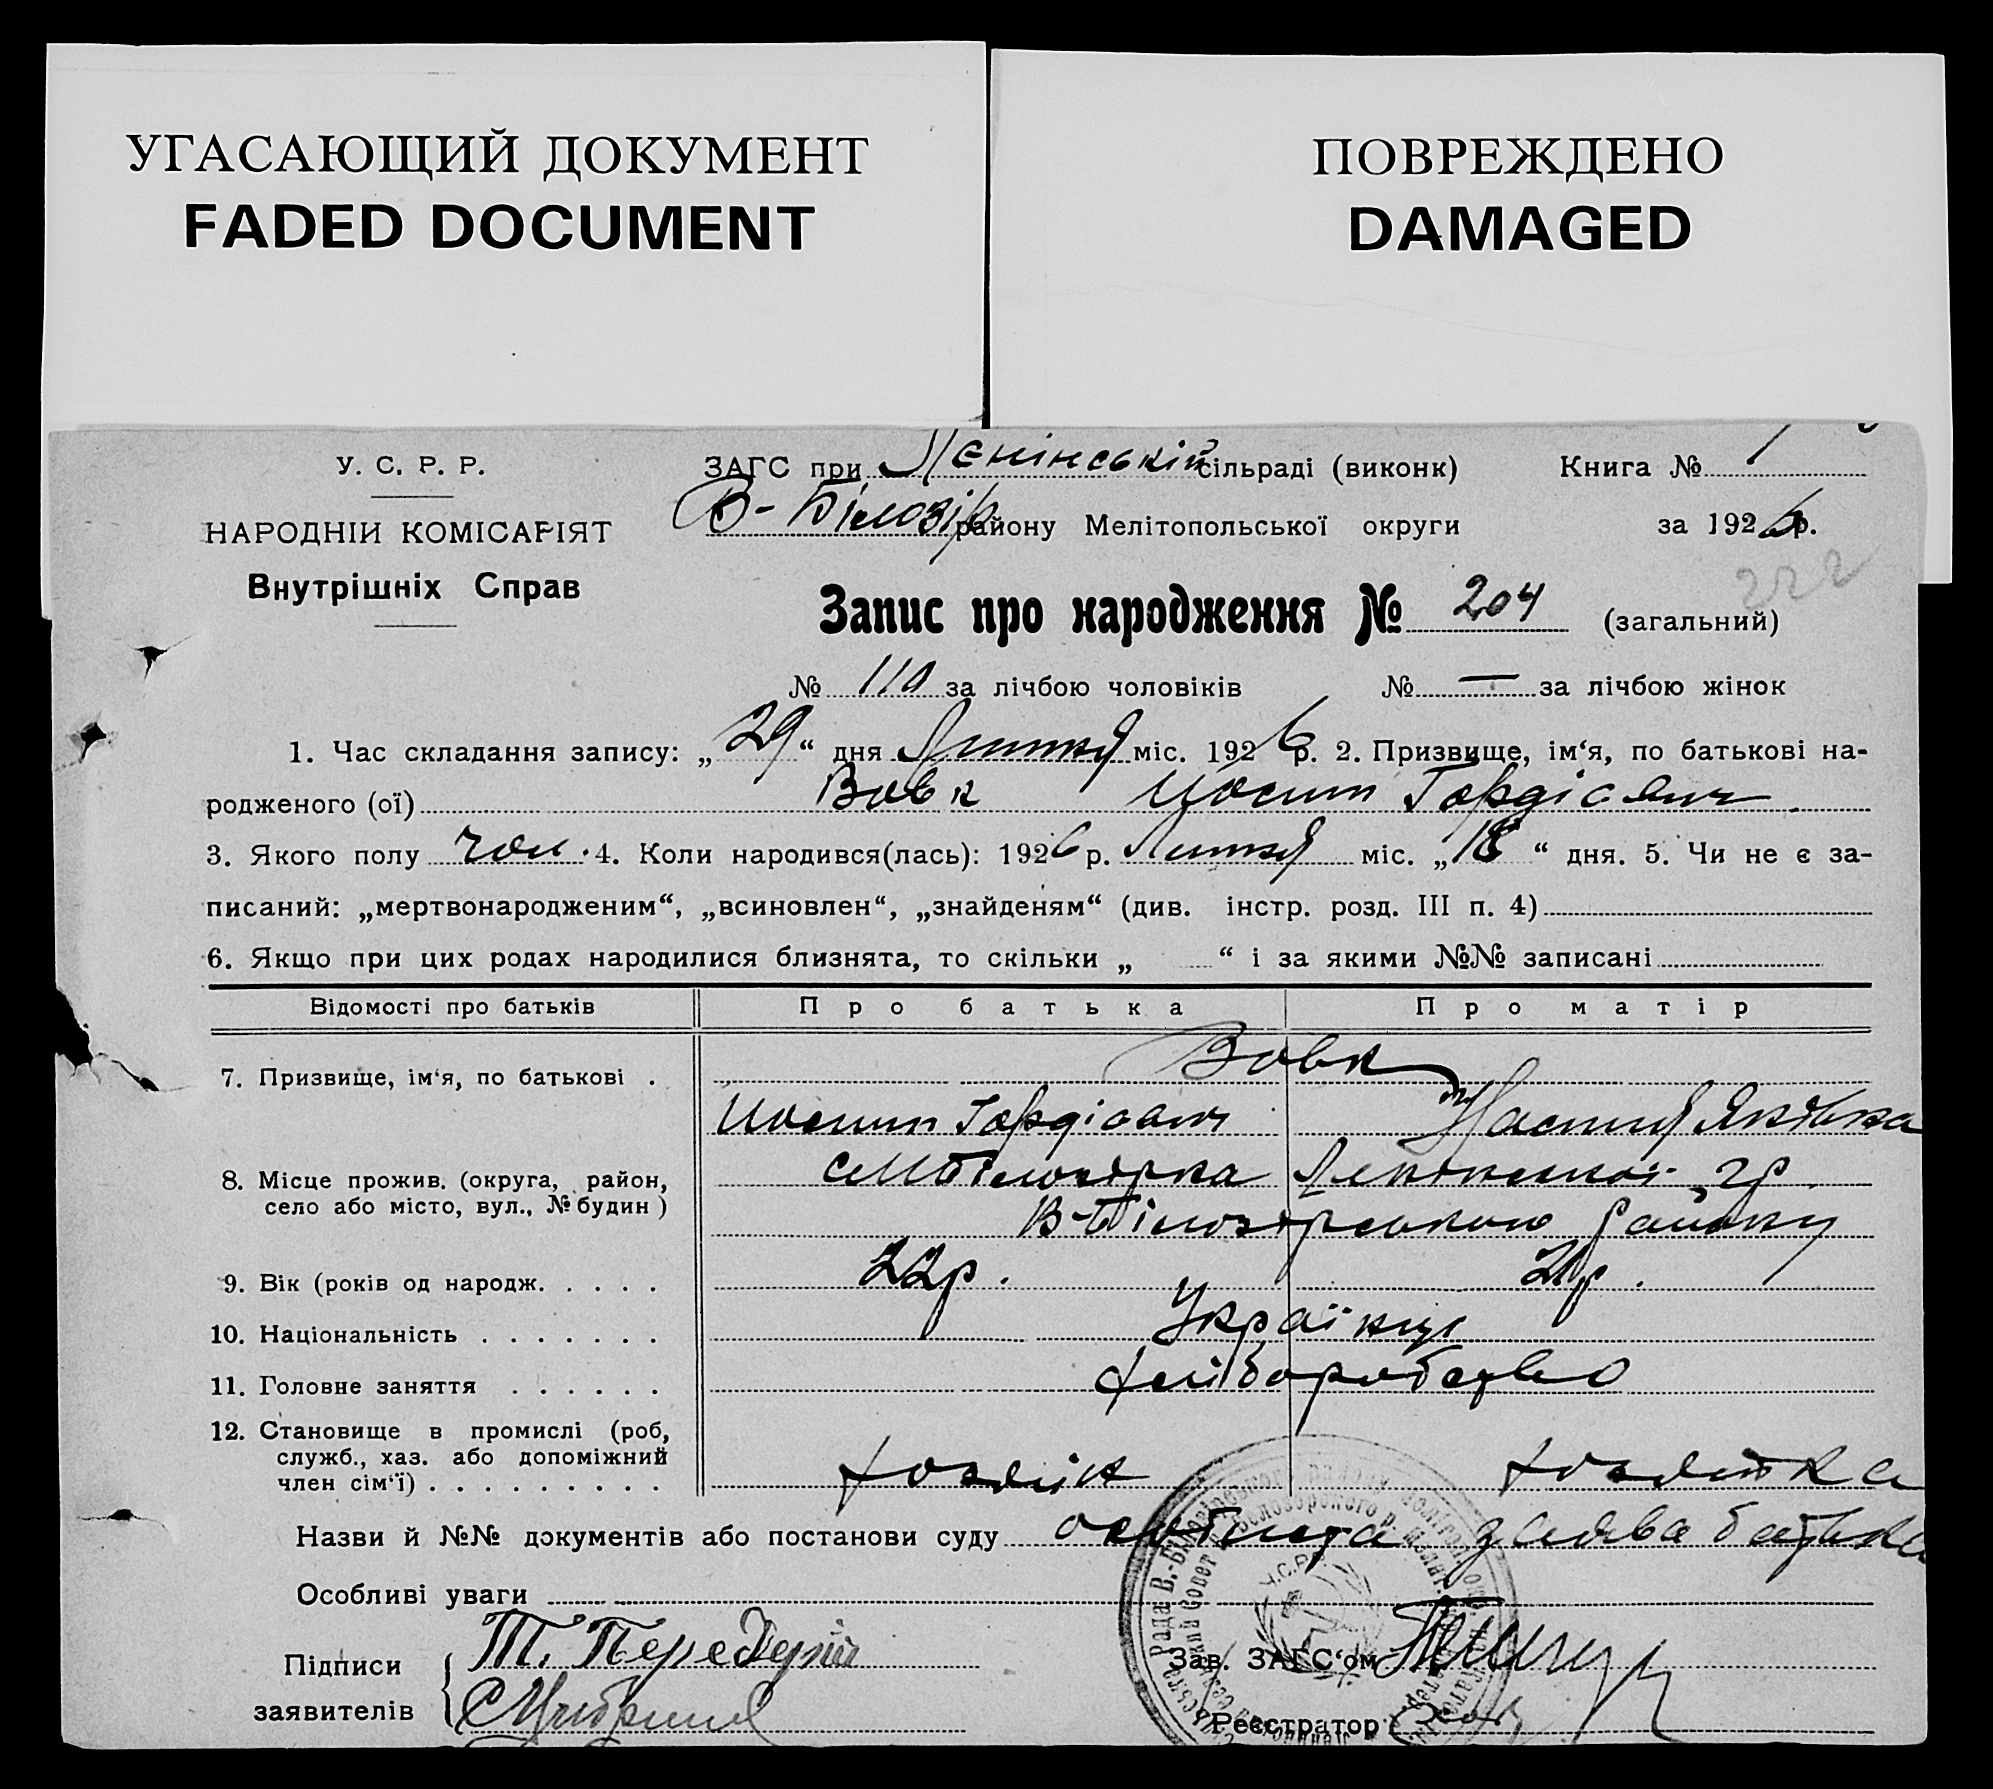 УГАСАЮЩИЙ ДОКУМЕНТ
FADED DOCUMENT
ПОВРЕЖДЕНО
DAMAGED
У. С. Р. Р.
НАРОДНІЙ КОМІСАРІЯТ
Внутрішніх Справ
ЗАГС при Ленінській сільраді (виконк) Книга № 1
В-Білозір району Мелітопольської округи за 1926 р.
222
Запис про народження № 204 (загальний)
№ 110 за лічбою чоловіків № — за лічбою жінок
1. Час складання запису: „29“ дня Липня міс. 1926 р. 2. Призвище, ім‘я, по батькові на-
родженого (ої) Вовк Йосип Гордієвич
3. Якого полу чол. 4. Коли народився(лась): 1926 р. Липня міс. „18“ дня. 5. Чи не є за-
писаний: „мертвонародженим“, „всиновлен“, „знайденям“ (див. інстр. розд. III п. 4)
6. Якщо при цих родах народилися близнята, то скільки „ “ і за якими №№ записані
Відомості про батьків Про батька Про матір
7. Призвище, ім‘я, по батькові . Вовк
Йосип Гордієвич Настя Яківна
8. Місце прожив. (округа, район,
село або місто, вул., № будин) Ленінської
В-Білозірського району
9. Вік (років од народж. . . . . 22р. 21р.
10. Національність . . . . . . . Українці
11. Головне заняття . . . . . . хліборобство
12. Становище в промислі (роб,
служб., хаз. або допоміжний
член сім‘ї) . . . . . . . . . хозяїн хозяйка
Назви й №№ документів або постанови суду особиста заява батька
Особливі уваги
Підписи
заявителів
Т. Передерій
Зав. ЗАГС‘ом
Реєстратор